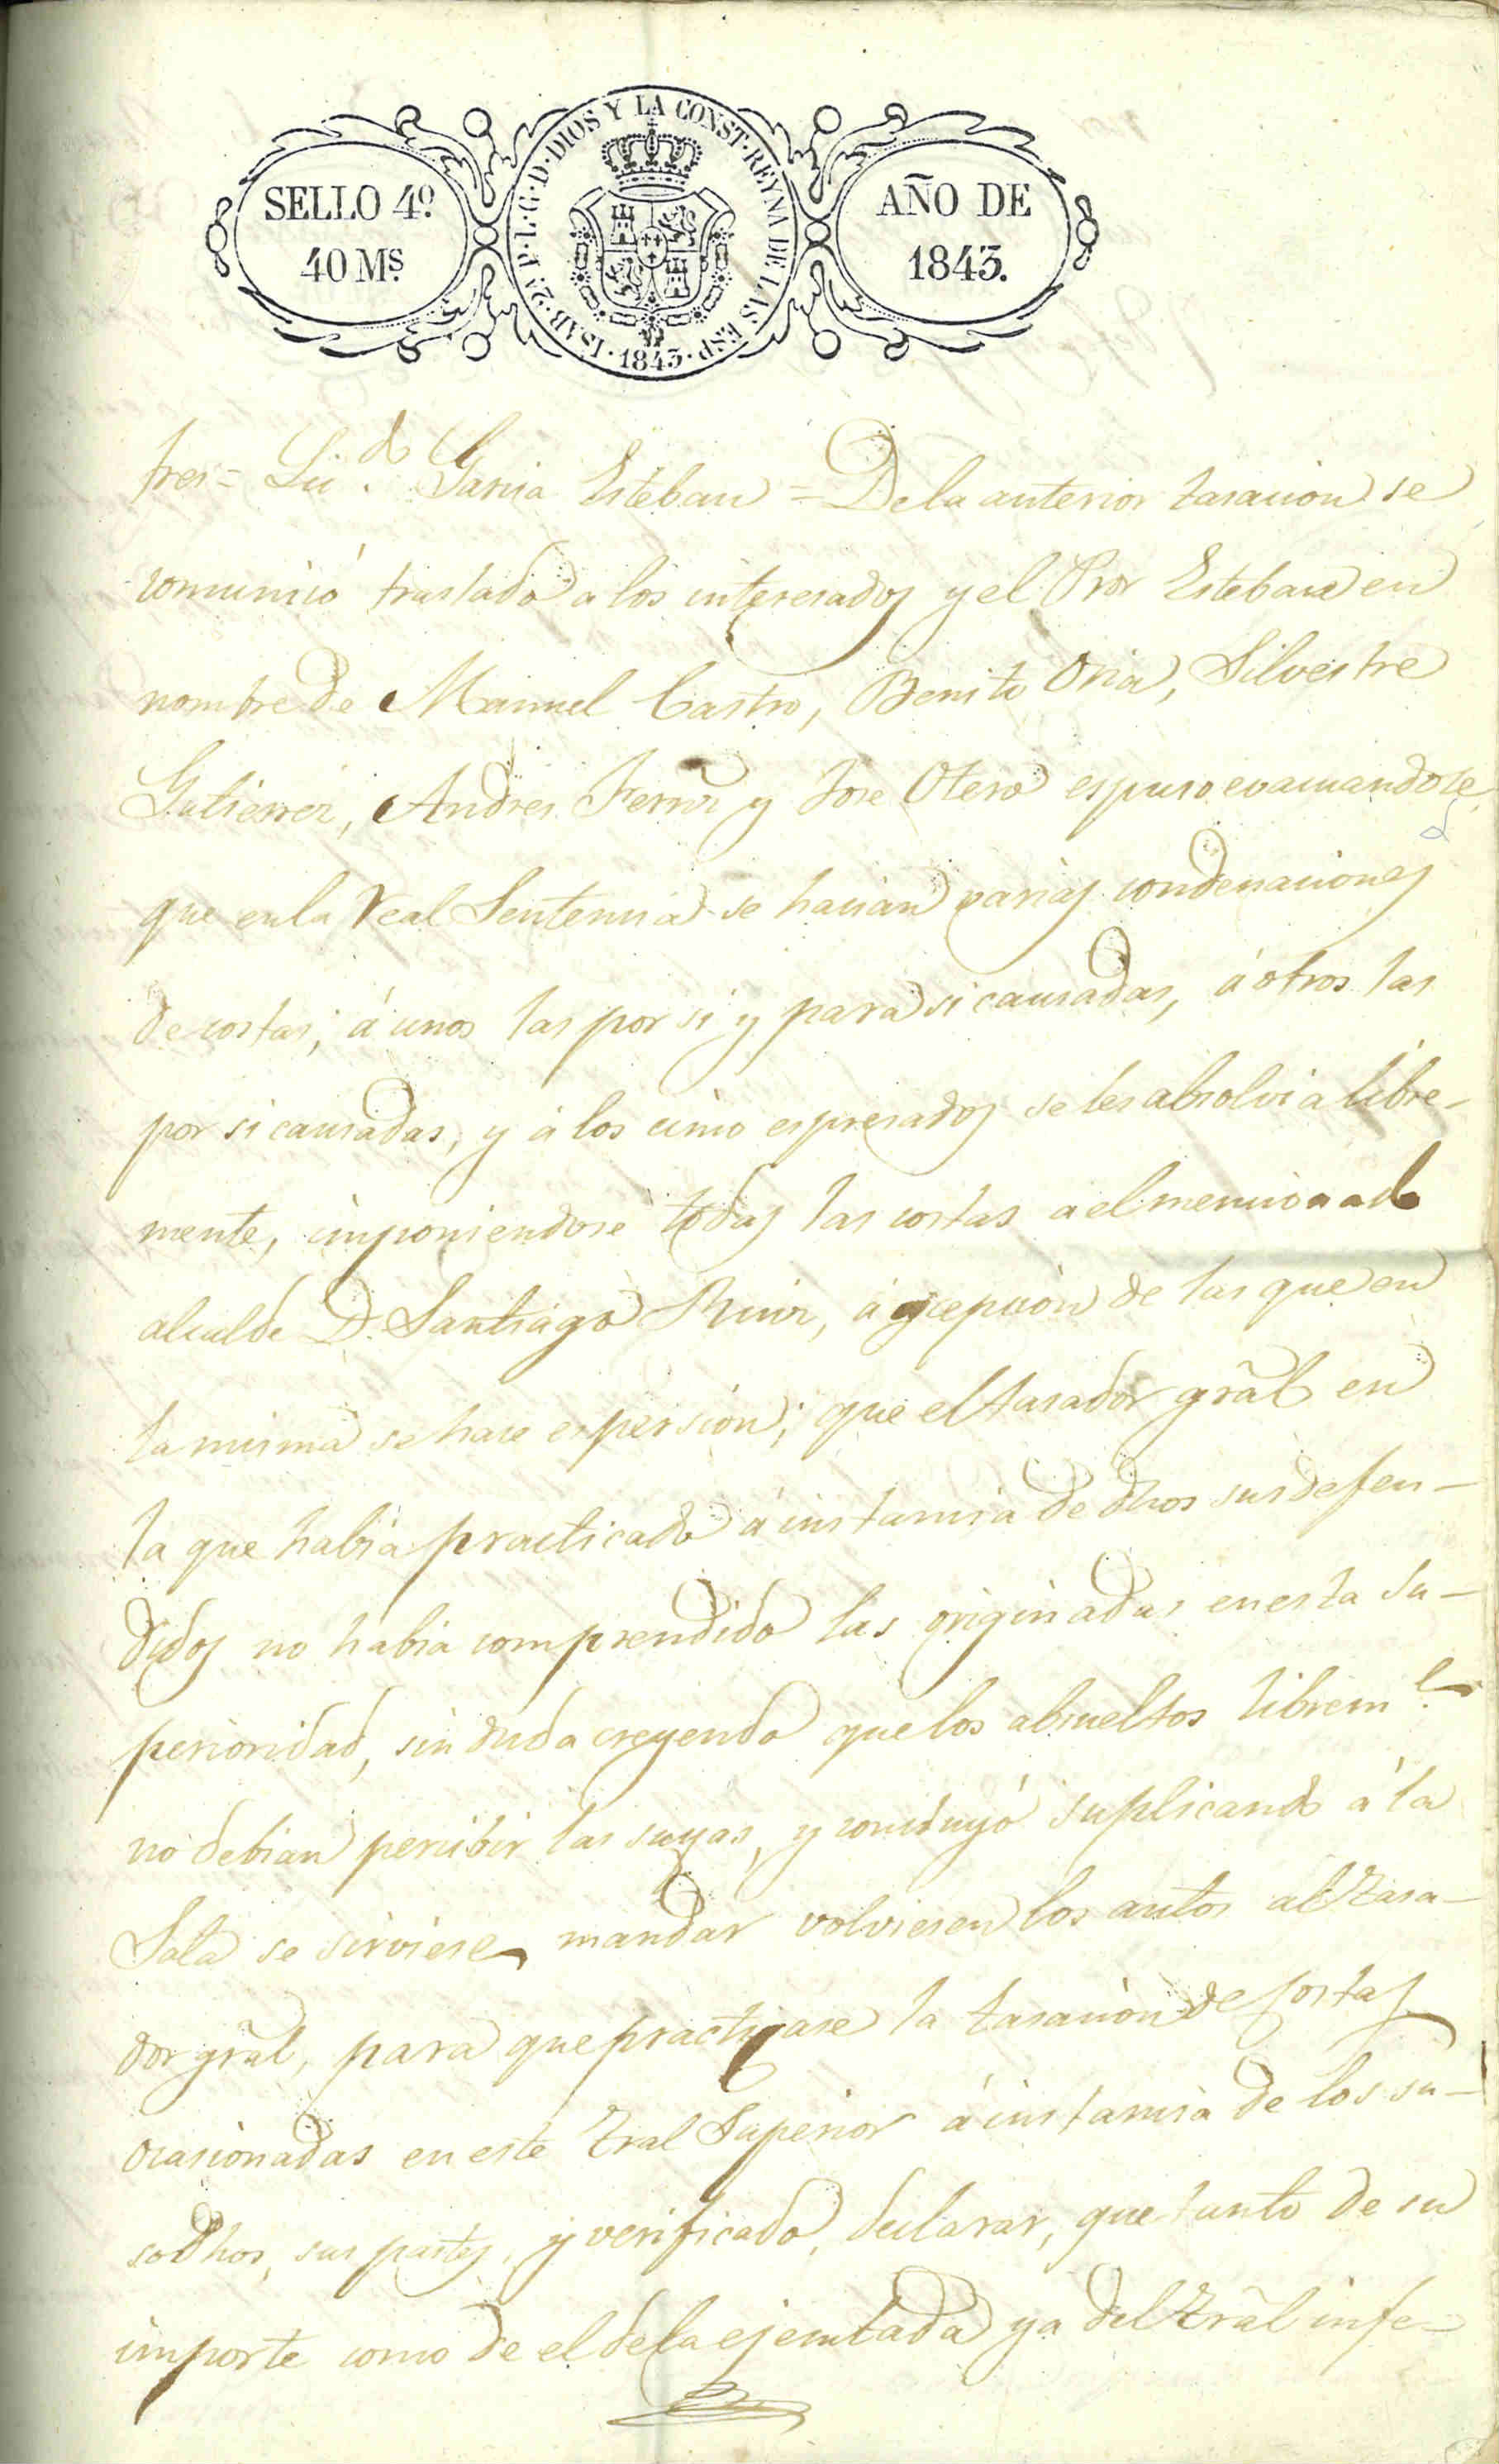 SELLO 4º.
40 Mˢ.
ISAB. 2ª. P. L. G. D. DIOS Y LA CONST. REYNA DE LAS ESP. 1843.
AÑO DE
1843.
tres = Liᵈᵒ. Garcia Esteban = De la anterior tasacion se
comunicó traslado a los interesados y el Pror Esteban en
nombre de Manuel Castro, Benito Oria, Silvestre
Gutierrez, Andres Fernz y Jose Otero espuso evacuandole
que en la Real Sentencia se hacian varias condenaciones
de costas; á unos las por si y para si causadas, á otros las
por si causadas, y á los cinco espresados se les absolvia libre-
mente, imponiendose todas las costas a el mencionado
alcalde D. Santiago Ruiz, á escepcion de las que en
la misma se hace espersion; que el tasador grãl en
la que habia practicado á instancia de dhos sus defen-
didos no habia comprendido las originadas en esta su-
perioridad, sin duda creyendo que los absueltos libremᵉ.
no debian percibir las suyas, y concluyó suplicando á la
Sala se sirviese mandar volviesen los autos al Tasa-
dor grãl, para que practicase la tasacion de costas
ocasionadas en este Tral Superior á instancia de los su-
sodhos, sus partes, y verificado, declarar, que tanto de su
importe como de el de la ejecutada ya del Trãl infe-